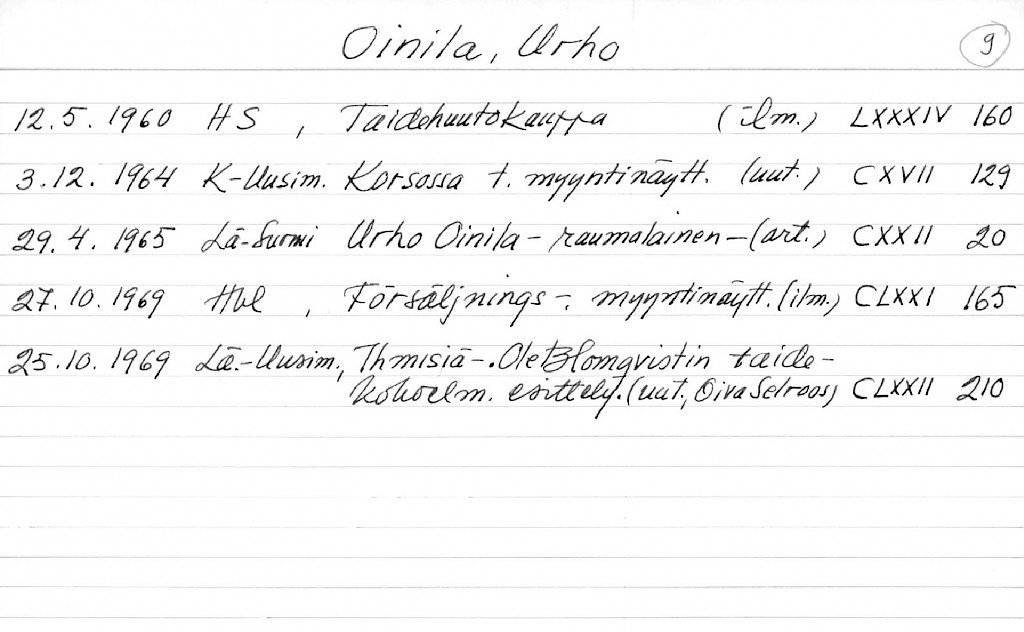 Oinila, Urho 9
12.5.1960 HS, Taidehuutokauppa (ilm.) LXXXIV 160
3.12.1964 K-Uusim. Korsossa t. myyntinäytt. (uut.) CXVII 129
29.4.1965 Lä-Suomi Urho Oinila - raumalainen - (art.) CXXII 20
27.10.1969 Hbl, Försäljnings-, myyntinäytt. (ilm.) CLXXI 165
25.10.1969 Lä.-Uusim., Ihmisiä-. Ole Blomqvistin taide-
kokoelm. esittely. (uut., Oiva Selroos) CLXXII 210